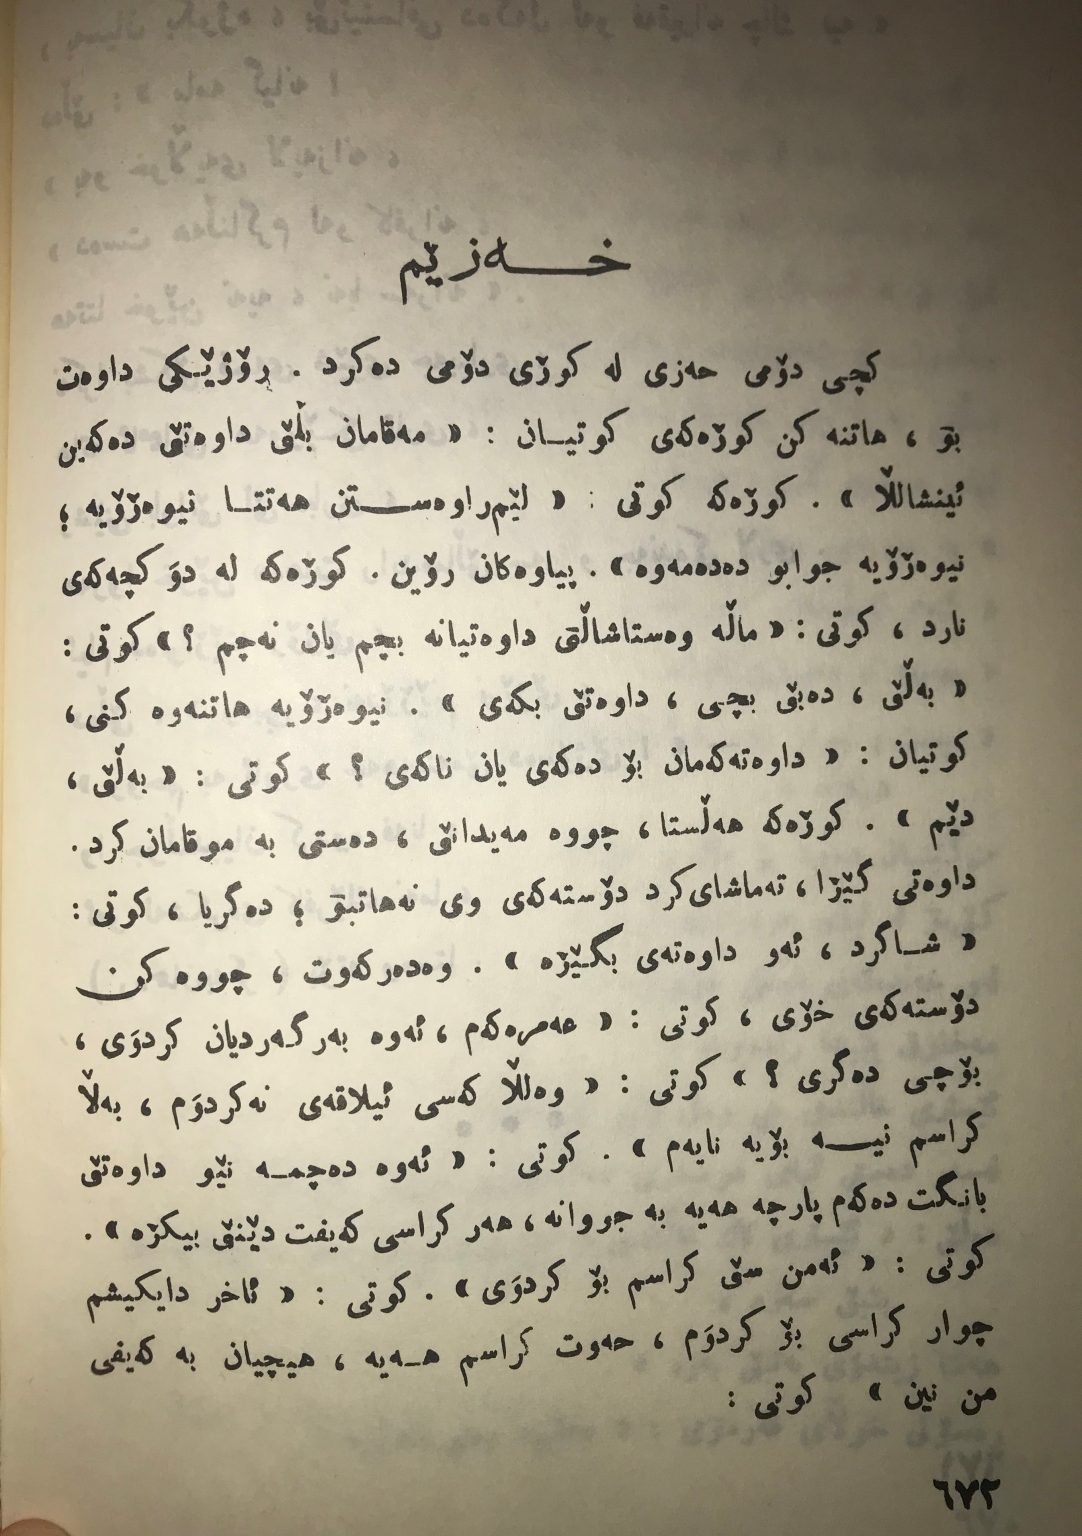 خــەزێم
کچی دۆمی حەزی لە کوڕی دۆمی دەکرد . ڕۆژێکی داوەت
بۆ ، هاتنە کن کوڕەکەی کوتیـان : « مەقامان بڵێ داوەتێ دەکەین
ئینشاللا » . کوڕەکە کوتی : « لێم‌ڕاوەسـتن هەتتـا نیوەڕۆیە ؛
نیوەڕۆیە جوابو دەدەمەوە » . پیاوەکان رۆین . کوڕەکە لە دوَ کچەکەی
نارد ، کوتی : « ماڵە وەستاشاڵێ داوەتیانە بچم یان نەچم ؟ » کوتی :
« بەڵێ ، دەبێ بچی ، داوەتێ بکەی » . نیوەڕۆیە هاتنەوە کنی ،
کوتیان : « داوەتەکەمان بۆ دەکەی یان ناکەی ؟ » کوتی : « بەڵێ ،
دێم » . کوڕەکە هەڵستا ، چووە مەیدانێ ، دەستی بە موقامان کرد .
داوەتی گێڕا ، تەماشای‌کرد دۆستەکەی وی نەهاتبۆ ؛ دەگریا ، کوتی :
« شـاگرد ، ئەو داوەتەی بگـێڕە » . وەدەرکەوت ، چووە کن
دۆستەکەی خۆی ، کوتی : « عەمرەکەم ، ئەوە بەرگەردیان کردوَی ،
بۆچی دەگری ؟ » کوتی : « وەللا کەسی ئیلاقەی نەکردوَم ، بەڵا
کراسم نیـە بۆیە نایەم » . کوتی : « ئەوە دەچمـە نێو داوەتێ
بانگت دەکەم پارچە هەیە بە جووانە ، هەر کراسی کەیفت دێنێ بیکڕە » .
کوتی : « ئەمن سێ کراسم بۆ کردوَی » . کوتی : « ئاخر دایکیشم
چوار کراسی بۆ کردوَم ، حەوت کراسم هـەیە ، هیچیان بە کەیفی
من نین » کوتی :
٦٧٢